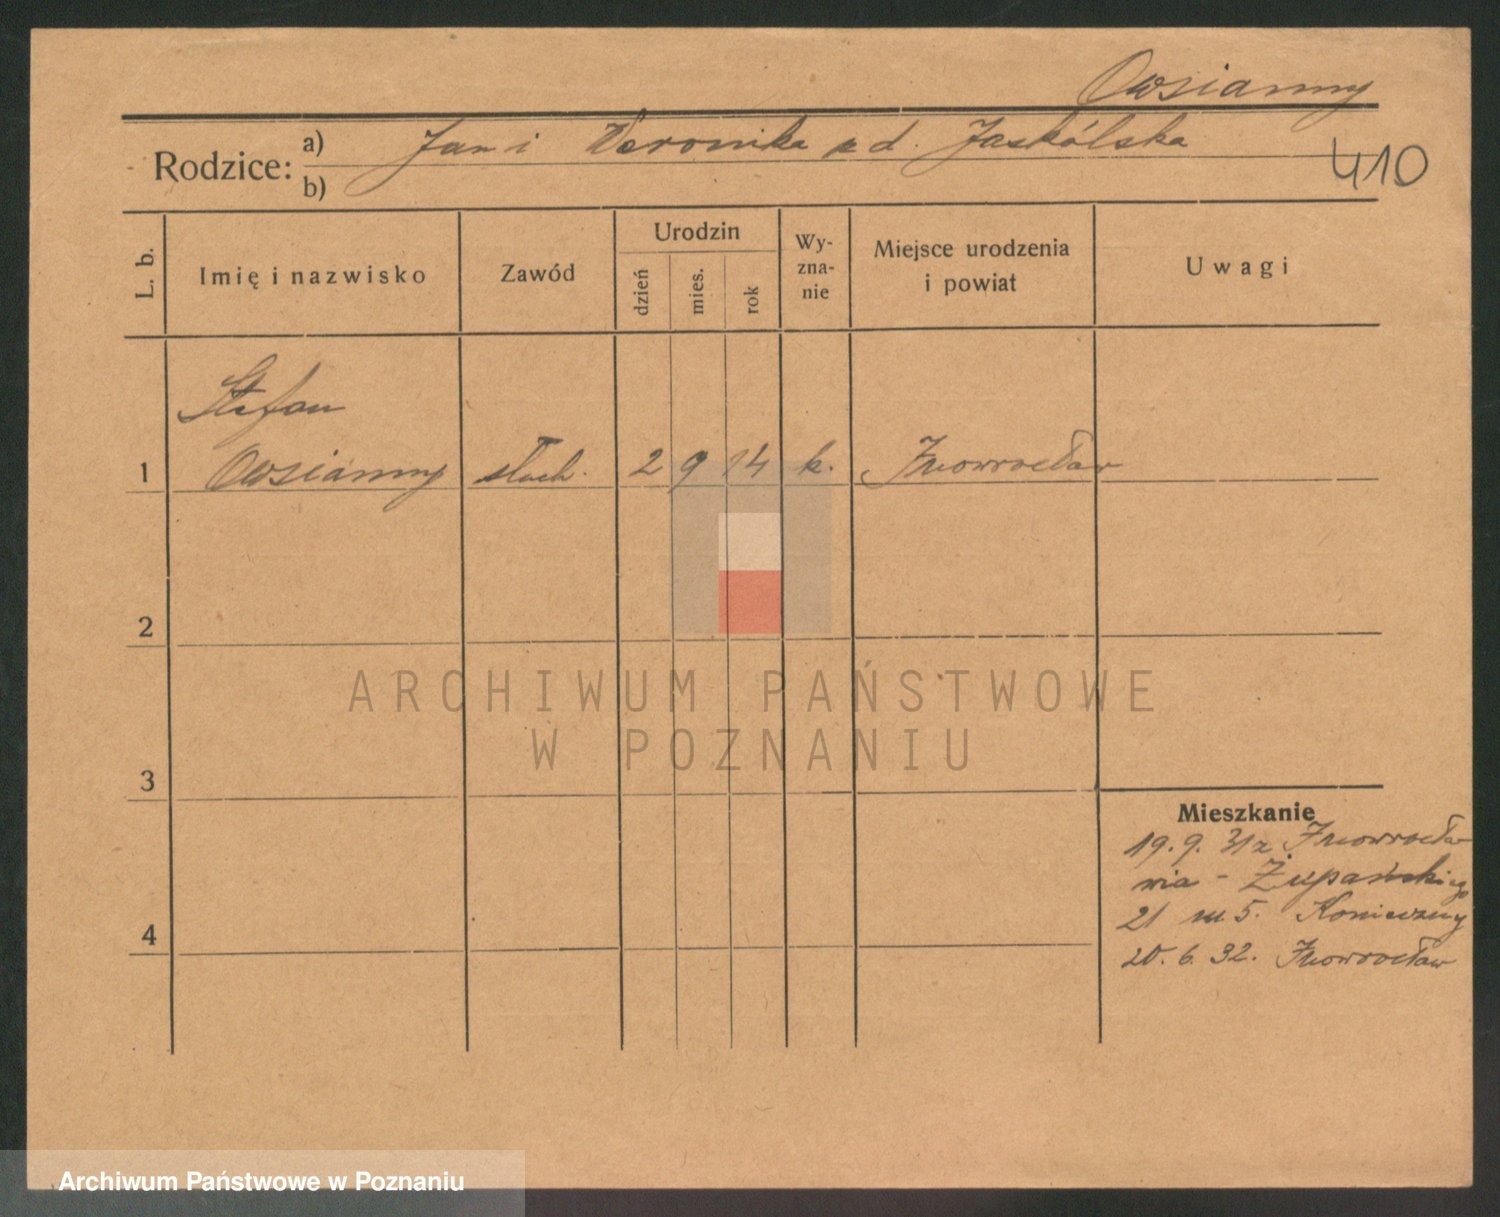 Owsianny
Rodzice: a) Jan i Weronika z d. Jaskólska
b)
410
L. b.
Imię i nazwisko
Zawód
Urodzin
dzień
mies.
rok
Wy-
zna-
nie
Miejsce urodzenia
i powiat
Uwagi
Stefan
1 Owsianny słuch. 2 9 14 k. Inowrocław
2
3
4
Mieszkanie
19. 9. 31 z Inowrocła-
wia - Żupańskiego
21 m 5. Konieczny
20. 6. 32. Inowrocław
ARCHIWUM PAŃSTWOWE
W POZNANIU
Archiwum Państwowe w Poznaniu